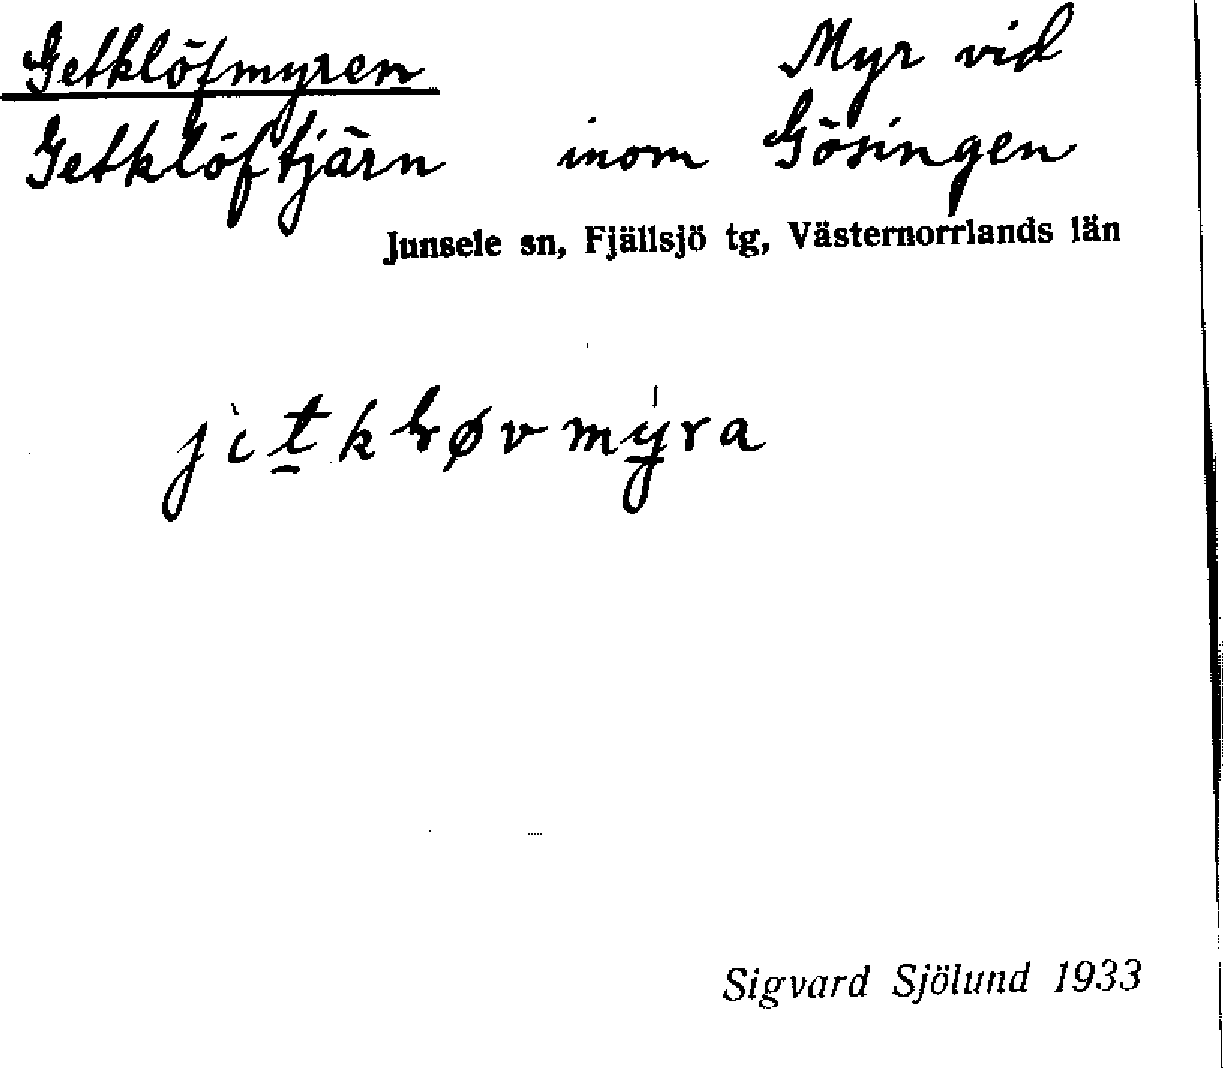 Getklöfmyren Myr vid
Getklöftjärn inom Gösingen
Junsele sn, Fjällsjö tg, Västernorrlands län
Sigvard Sjölund 1933